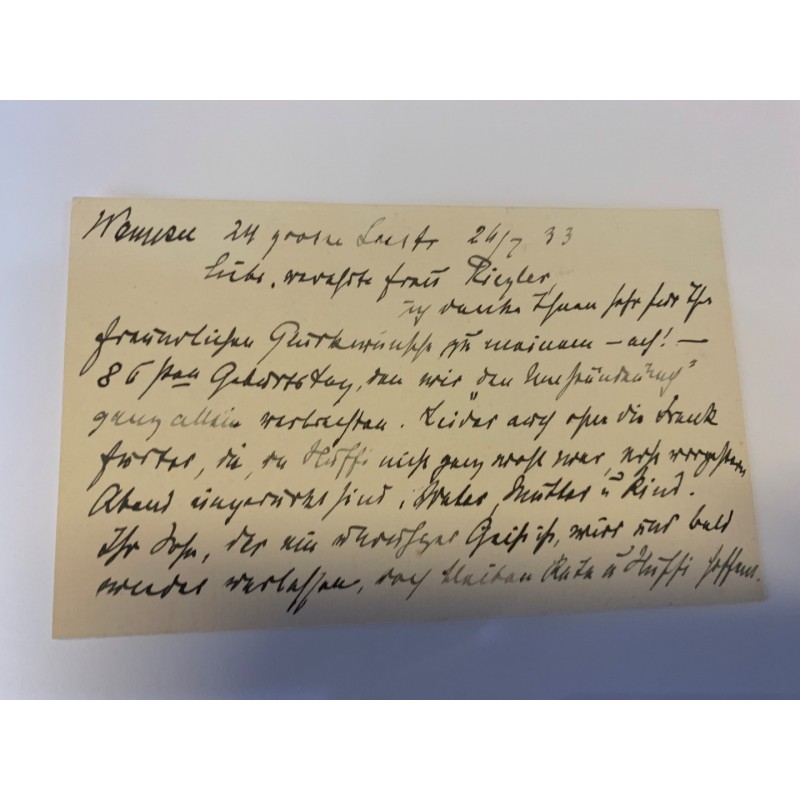 Wannsee 24 grosse Seestr 26/7 33
Liebe, verehrte Frau Riezler,
ich danke Ihnen sehr für Ihre
freundlichen Glückwünsche zu meinem – ach! –
86sten Geburtstag, den wir „den Umständen"
ganz allein verbrachten. Leider auch ohne die Frank
furter, die, da Steffi nicht ganz wohl war, erst vorgestern
Abend eingerückt sind, Vater, Mutter u Kind.
Ihr Sohn, der ein unruhiger Geist ist, wird uns bald
wieder verlassen, doch bleiben Käte u Steffi hoffent.